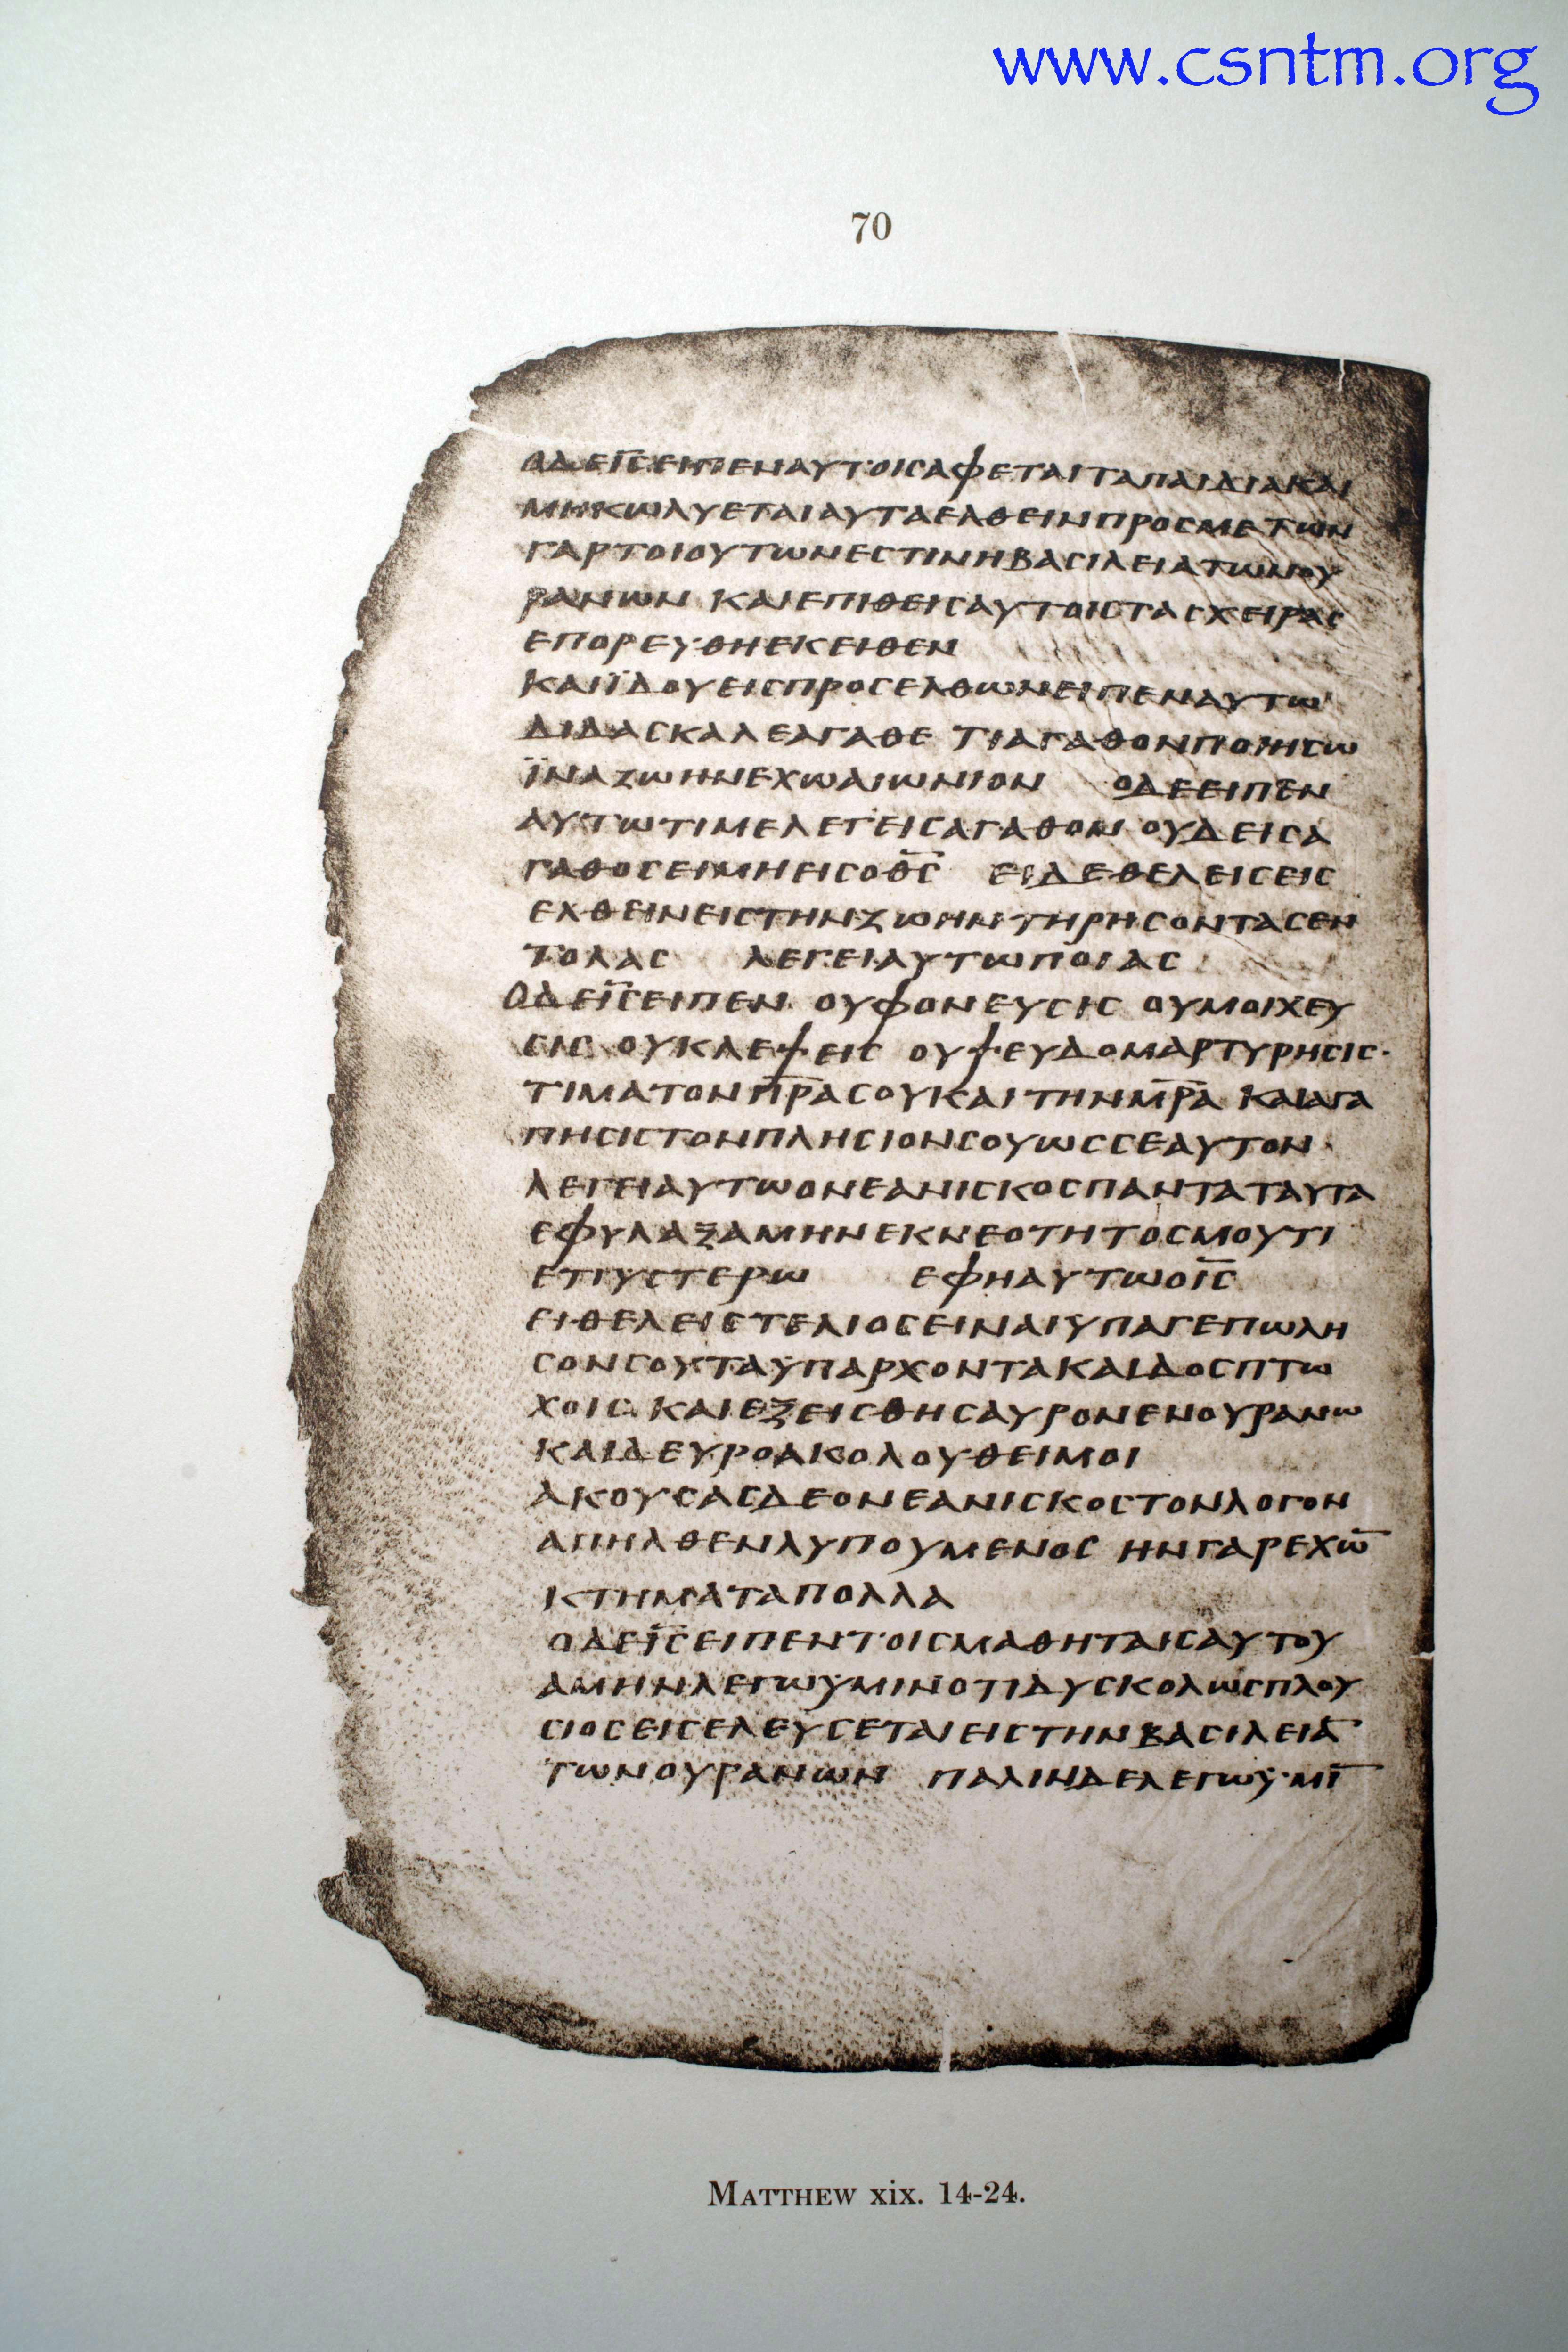 www.csntm.org
70
ΟΔΕΙ̅Σ̅ΕΙΠΕΝΑΥΤΟΙϹΑΦΕΤΑΙΤΑΠΑΙΔΙΑΚΑΙ
ΜΗΚΩΛΥΕΤΑΙΑΥΤΑΕΛΘΕΙΝΠΡΟϹΜΕΤΩΝ
ΓΑΡΤΟΙΟΥΤΩΝΕϹΤΙΝΗΒΑϹΙΛΕΙΑΤΩΝΟΥ
ΡΑΝΩΝ ΚΑΙΕΠΙΘΕΙϹΑΥΤΟΙϹΤΑϹΧΕΙΡΑϹ
ΕΠΟΡΕΥΘΗΕΚΕΙΘΕΝ
ΚΑΙΪΔΟΥΕΙϹΠΡΟϹΕΛΘΩΝΕΙΠΕΝΑΥΤΩ
ΔΙΔΑϹΚΑΛΕΑΓΑΘΕ ΤΙΑΓΑΘΟΝΠΟΙΗϹΩ
ΪΝΑΖΩΗΝΕΧΩΑΙΩΝΙΟΝ ΟΔΕΕΙΠΕΝ
ΑΥΤΩΤΙΜΕΛΕΓΕΙϹΑΓΑΘΟΝ ΟΥΔΕΙϹΑ
ΓΑΘΟϹΕΙΜΗΕΙϹΟΘ̅Ϲ̅ ΕΙΔΕΘΕΛΕΙϹΕΙϹ
ΕΛΘΕΙΝΕΙϹΤΗΝΖΩΗΝΤΗΡΗϹΟΝΤΑϹΕΝ
ΤΟΛΑϹ ΛΕΓΕΙΑΥΤΩΠΟΙΑϹ
ΟΔΕΙ̅Ϲ̅ΕΙΠΕΝ ΟΥΦΟΝΕΥϹΙϹ ΟΥΜΟΙΧΕΥ
ϹΙϹ ΟΥΚΛΕΨΕΙϹ ΟΥΨΕΥΔΟΜΑΡΤΥΡΗϹΙϹ·
ΤΙΜΑΤΟΝΠ̅Ρ̅Α̅ϹΟΥΚΑΙΤΗΝΜ̅Ρ̅Α̅ ΚΑΙΑΓΑ
ΠΗϹΙϹΤΟΝΠΛΗϹΙΟΝϹΟΥΩϹϹΕΑΥΤΟΝ·
ΛΕΓΕΙΑΥΤΩΟΝΕΑΝΙϹΚΟϹΠΑΝΤΑΤΑΥΤΑ
ΕΦΥΛΑΞΑΜΗΝΕΚΝΕΟΤΗΤΟϹΜΟΥΤΙ
ΕΤΙΥϹΤΕΡΩ ΕΦΗΑΥΤΩΟΙ̅Ϲ̅
ΕΙΘΕΛΕΙϹΤΕΛΙΟϹΕΙΝΑΙΥΠΑΓΕΠΩΛΗ
ϹΟΝϹΟΥΤΑΥΠΑΡΧΟΝΤΑΚΑΙΔΟϹΠΤΩ
ΧΟΙϹ ΚΑΙΕΞΕΙϹΘΗϹΑΥΡΟΝΕΝΟΥΡΑΝΩ
ΚΑΙΔΕΥΡΟΑΚΟΛΟΥΘΕΙΜΟΙ
ΑΚΟΥϹΑϹΔΕΟΝΕΑΝΙϹΚΟϹΤΟΝΛΟΓΟΝ
ΑΠΗΛΘΕΝΛΥΠΟΥΜΕΝΟϹ ΗΝΓΑΡΕΧΩ̅
ΚΤΗΜΑΤΑΠΟΛΛΑ
ΟΔΕΙ̅Ϲ̅ΕΙΠΕΝΤΟΙϹΜΑΘΗΤΑΙϹΑΥΤΟΥ
ΑΜΗΝΛΕΓΩΥΜΙΝΟΤΙΔΥϹΚΟΛΩϹΠΛΟΥ
ϹΙΟϹΕΙϹΕΛΕΥϹΕΤΑΙΕΙϹΤΗΝΒΑϹΙΛΕΙΑ̅
ΤΩΝΟΥΡΑΝΩΝ ΠΑΛΙΝΔΕΛΕΓΩΥΜΙ̅
MATTHEW xix. 14-24.